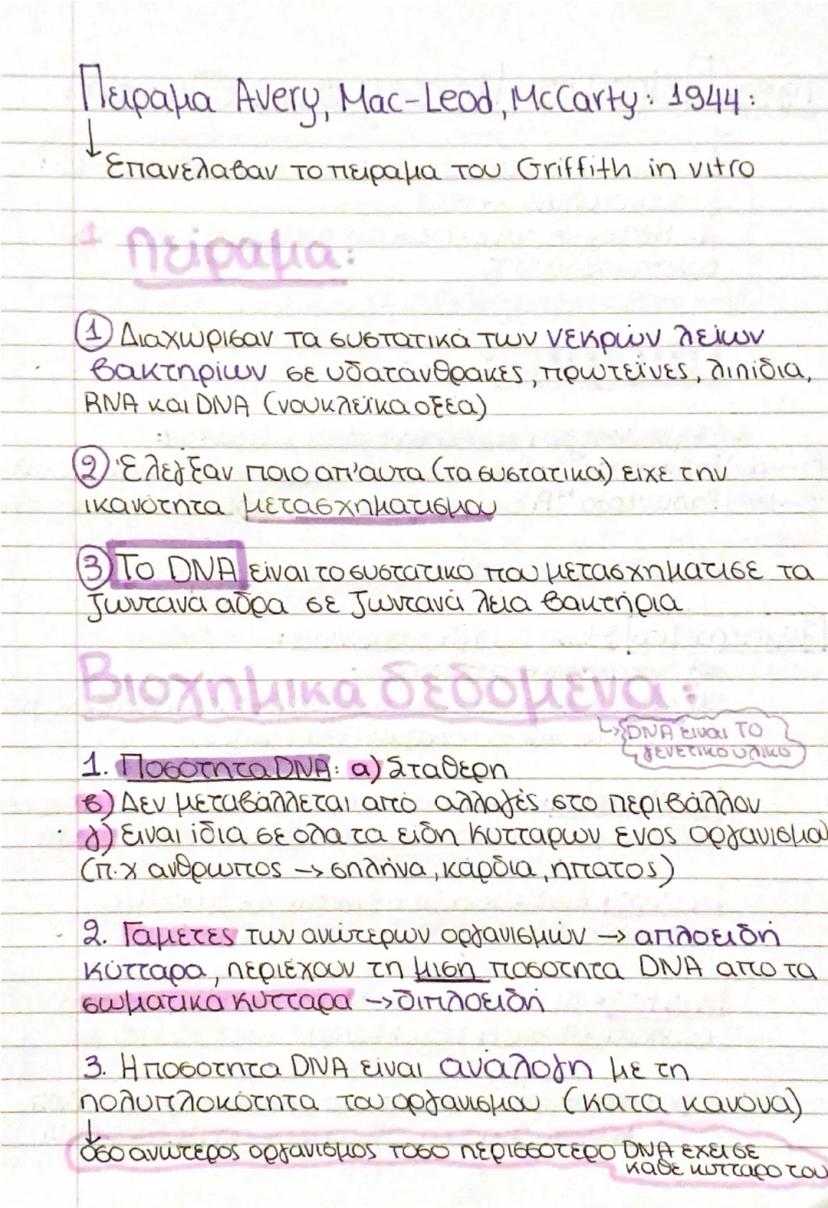 Πειραμα Avery, Mac-Leod, McCarty: 1944:
↓ Επανελαβαν το πειραμα του Griffith in vitro
1 Πείραμα:
① Διαχωρισαν τα συστατικά των νεκρών λείων
βακτηρίων σε υδατάνθρακες, πρωτεϊνες, λιπίδια,
RNA και DNA (νουκλεϊκα οξεα)
② Έλεγξαν ποιο απ'αυτα (τα συστατικα) ειχε την
ικανότητα μετασχηματισμου
③ Το DNA είναι το συστατικο που μετασχηματισε τα
ζωντανά αδρα σε ζωντανά λεια βακτήρια
Βιοχημικά δεδομένα:
↳ DNA είναι ΤΟ
γενετικο υλικο
1. Ποσότητα DNA: α) Σταθερη
β) Δεν μεταβάλλεται από αλλαγές στο περιβάλλον
γ) Ειναι ίδια σε ολα τα ειδη κυττάρων ενος οργανισμου
(π.χ ανθρωπος → σπλήνα, κάρδια, ήπατος)
2. Γαμετες των ανώτερων οργανισμών → απλοειδή
κύτταρα, περιέχουν τη μιση ποσοτητα DNA απο τα
σωματικά κυτταρα → διπλοειδή
3. Η ποσοτητα DNA είναι ανάλογη με τη
πολυπλοκότητα του οργανισμου (κατα κανόνα)
↓
όσο ανώτερος οργανισμος τοσο περισσοτερο DNA έχει σε
καθε κυτταρο του